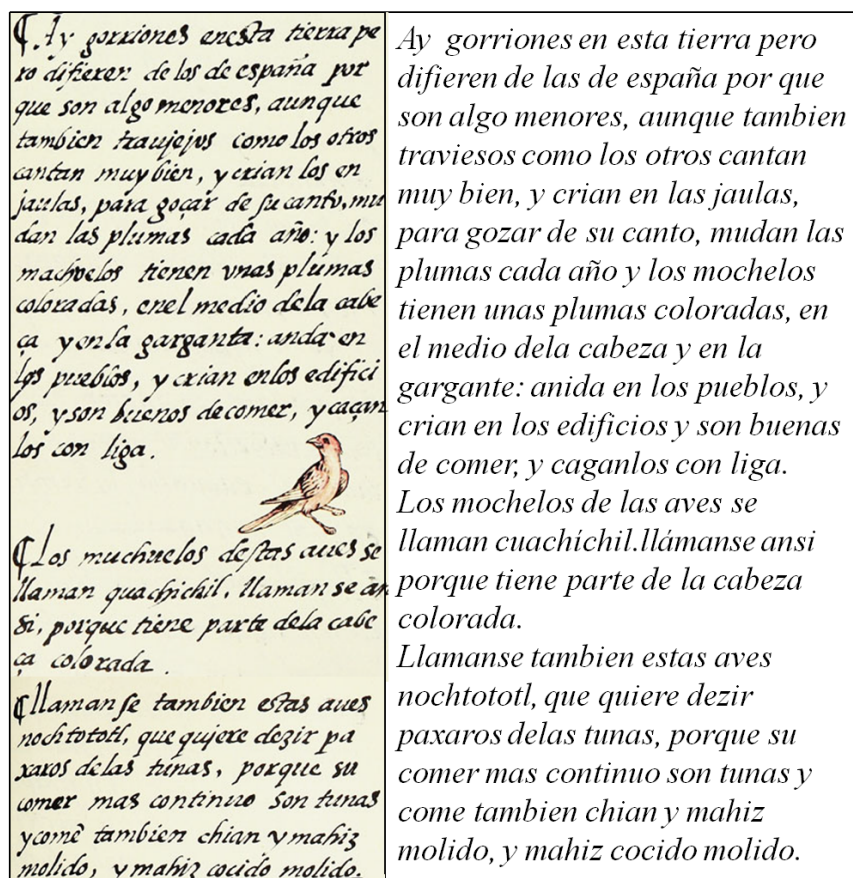 ¶ Ay gorriones enesta tierra pe
ro difieren de los de españa por
que son algo menores, aunque
tambien traujesos como los otros
cantan muy bien, y crian los en
jaulas, para goçar de su canto, mu
dan las plumas cada año: y los
machuelos tienen vnas plumas
coloradas, enel medio dela cabe
ça y enla garganta: andan en
los pueblos, y crian enlos edifici
os, y son buenos decomer, y caçan
los con liga.
¶ Los muchuelos destas aues se
llaman quachichil, llaman se an
si, porque tiene parte dela cabe
ça colorada.
¶ llaman se tambien estas aues
nochtototl, que qujere dezir pa
xaros delas tunas, porque su
comer mas continuo son tunas
y comē tambien chian y mahiz
molido, y mahiz cocido molido.
Ay gorriones en esta tierra pero
difieren de las de españa por que
son algo menores, aunque tambien
traviesos como los otros cantan
muy bien, y crian en las jaulas,
para gozar de su canto, mudan las
plumas cada año y los mochelos
tienen unas plumas coloradas, en
el medio dela cabeza y en la
gargante: anida en los pueblos, y
crian en los edificios y son buenas
de comer, y caganlos con liga.
Los mochelos de las aves se
llaman cuachíchil.llámanse ansi
porque tiene parte de la cabeza
colorada.
Llamanse tambien estas aves
nochtototl, que quiere dezir
paxaros delas tunas, porque su
comer mas continuo son tunas y
come tambien chian y mahiz
molido, y mahiz cocido molido.